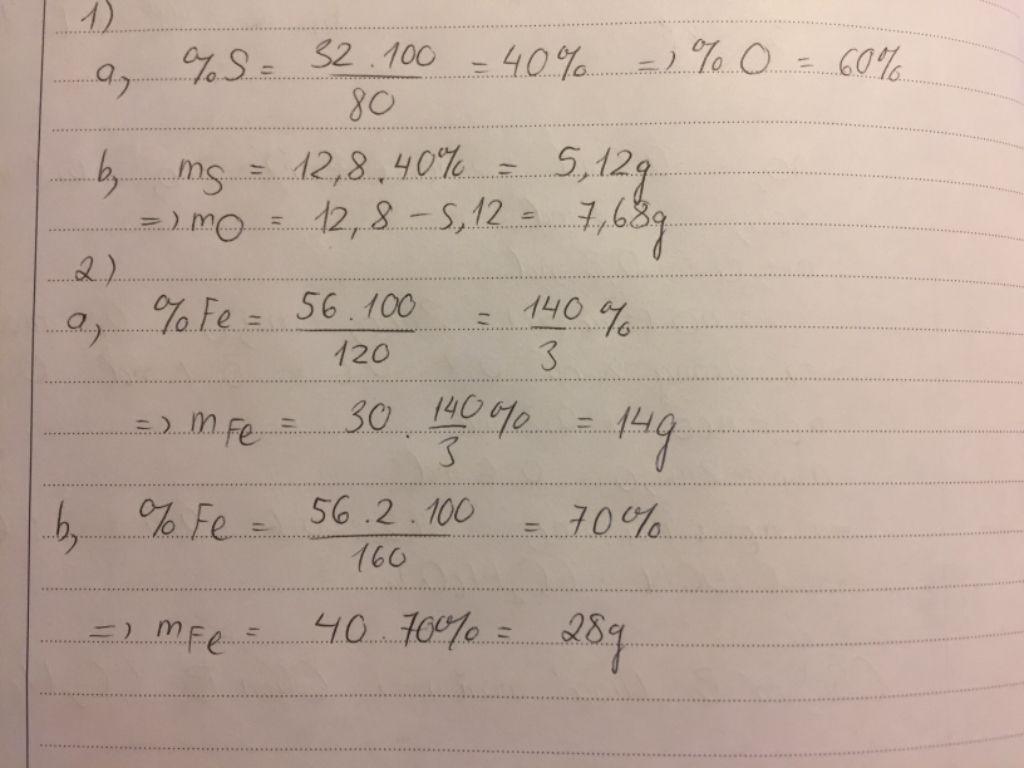 1)
a, %S = 32.100/80 = 40% => %O = 60%
b, mS = 12,8.40% = 5,12g
=> mO = 12,8 - 5,12 = 7,68g
2)
a, %Fe = 56.100/120 = 140/3 %
=> mFe = 30.140/3 % = 14g
b, %Fe = 56.2.100/160 = 70%
=> mFe = 40.70% = 28g